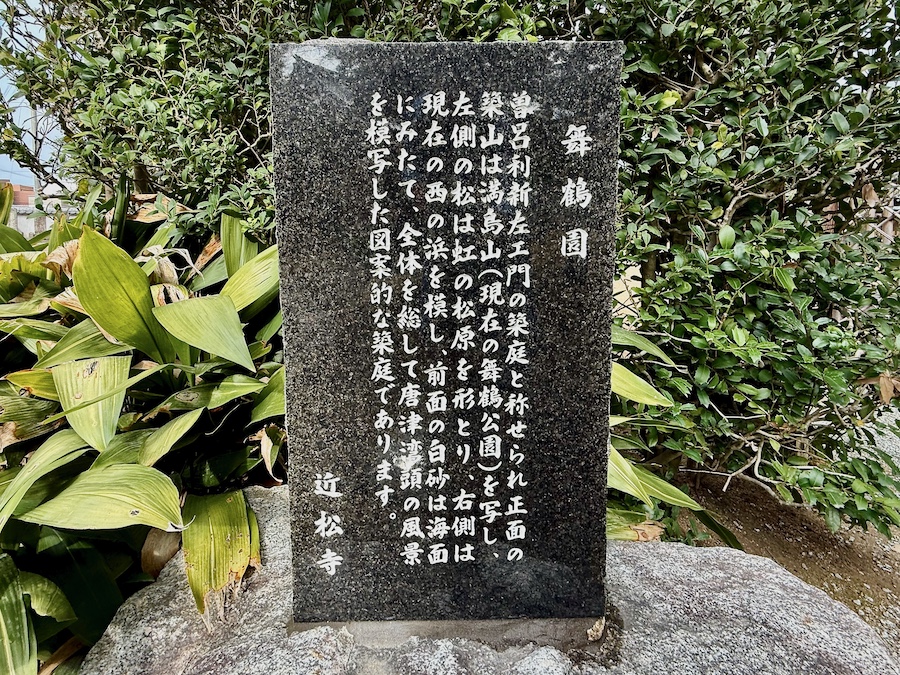 舞鶴園
曽呂利新左エ門の築庭と称せられ正面の
築山は満島山(現在の舞鶴公園)を写し、
左側の松は虹の松原を形とり、右側は
現在の西の浜を模し、前面の白砂は海面
にみたて、全体を総して唐津湾頭の風景
を模写した図案的な築庭であります。
近松寺